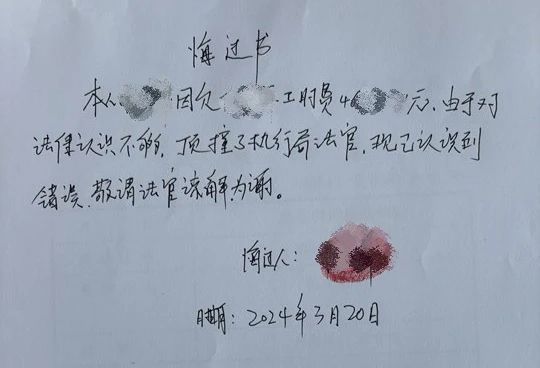 悔过书
本人 因欠 工时费46 元,由于对
法律认识不够,顶撞了执行局法官,现已认识到
错误,敬请法官谅解为谢。
悔过人:
日期:2024年3月20日